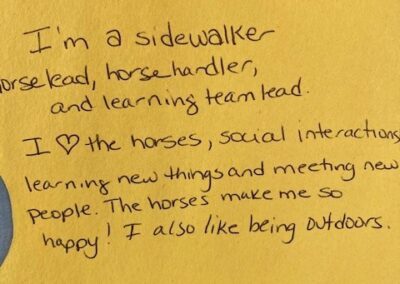 I'm a sidewalker
horse lead, horse handler,
and learning team lead.
I ♡ the horses, social interactions
learning new things and meeting new
people. The horses make me so
happy! I also like being outdoors.